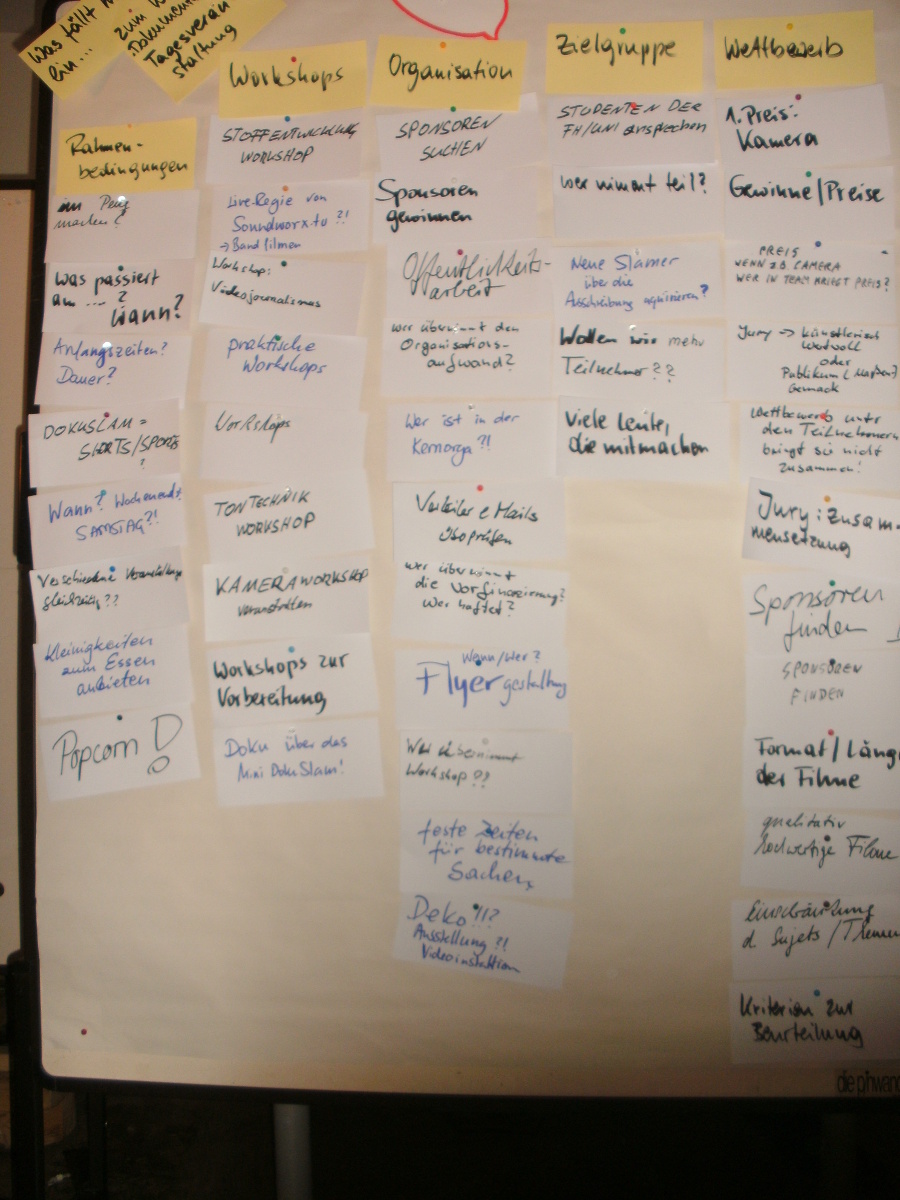 Was fällt
ein...
zum
Dokumen
Tagesveran
staltung
Rahmen-
bedingungen
im
machen?
Was passiert
am ... ?
Wann?
Anfangszeiten?
Dauer?
DOKUSLAM =
SHORTS/SPORTS
?
Wann? Wochenende?
SAMSTAG?!
Verschiedene
gleichzeitig??
Kleinigkeiten
zum Essen
anbieten
Popcorn!
Workshops
STOFFENTWICKLUNG
WORKSHOP
Live-Regie von
Soundworx.tv ?!
→ Band filmen
Workshop:
Videojournalismus
praktische
Workshops
Workshops
TONTECHNIK
WORKSHOP
KAMERAWORKSHOP
veranstalten
Workshops zur
Vorbereitung
Doku über das
Mini DokuSlam!
Organisation
SPONSOREN
SUCHEN
Sponsoren
gewinnen
Öffentlichkeits-
arbeit
wer übernimmt den
Organisations-
aufwand?
Wer ist in der
Kernorga?!
Verteiler eMails
überprüfen
wer übernimmt
die Vorfinanzierung?
Wer haftet?
Wann/wer?
Flyergestaltung
Wer übernimmt
Workshop??
feste Zeiten
für bestimmte
Sachen
Deko!!?
Ausstellung?!
Videoinstalltion
Zielgruppe
STUDENTEN DER
FH/UNI ansprechen
wer nimmt teil?
Neue Slamer
über die
Ausschreibung aquirieren?
Wollen wir mehr
Teilnehmer??
Viele Leute,
die mitmachen
Wettbewerb
1. Preis:
Kamera
Gewinne/Preise
PREIS
WENN Z.B. CAMERA
WER IN TEAM KRIEGT PREIS?
Jury → künstlerisch
wertvoll
oder
Publikum (Massen)
Gemack
Wettbewerb unter
den Teilnehmern
bringt sie nicht
zusammen!
Jury: Zusam-
mensetzung
Sponsoren
finden
SPONSOREN
FINDEN
Format/Läng
der Filme
qualitativ
hochwertige Filme
Einschränkung
d. Sujets/Themen
Kriterien zur
Beurteilung
die pinwand